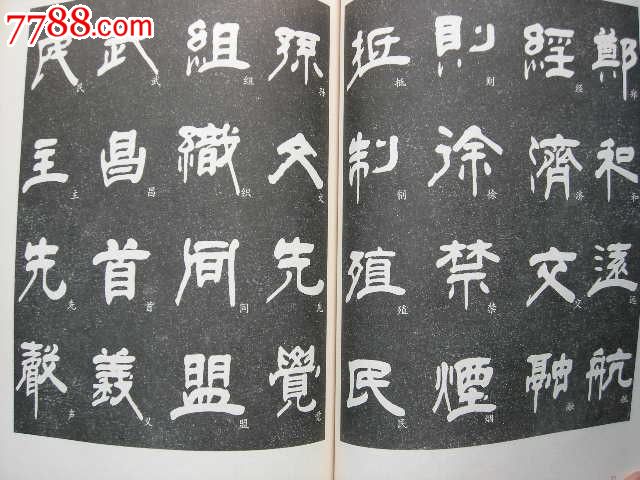 7788.com
鄭和遠航
郑和远航
經濟交融
经济交融
則徐禁煙
则徐禁烟
抵制殖民
抵制殖民
孫文先覺
孙文先觉
組織同盟
组织同盟
武昌首義
武昌首义
民主先聲
民主先声